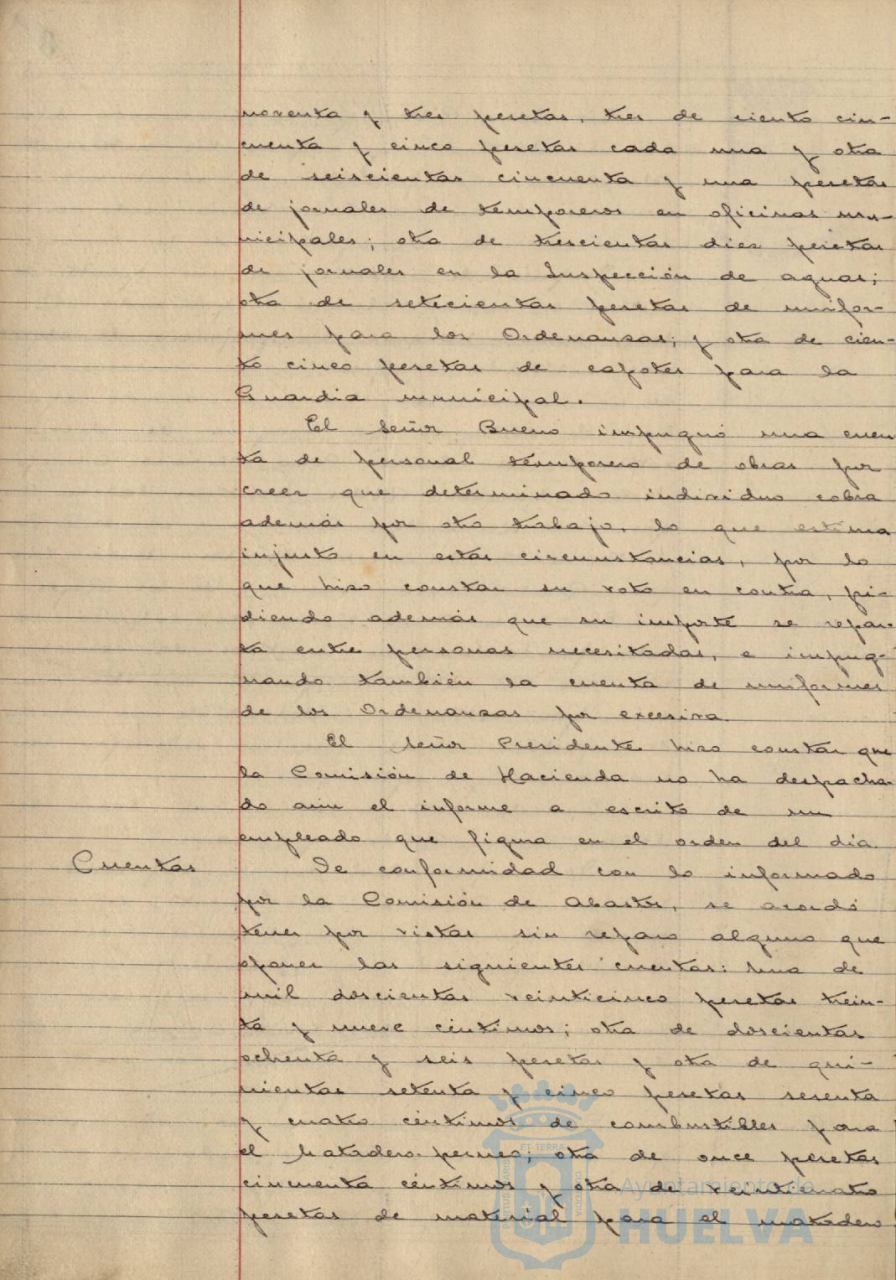 noventa y tres pesetas, tres de ciento cin-
cuenta y cinco pesetas cada una y otra
de seiscientas cincuenta y una pesetas
de jornales de temporeros en oficinas mu-
nicipales; otra de trescientas diez pesetas
de jornales en la Inspección de aguas;
otra de setecientas pesetas de unifor-
mes para los Ordenanzas; y otra de cien-
to cinco pesetas de capotes para la
Guardia municipal.
El señor Bueno impugnó una cuen
ta de personal temporero de obras por
creer que determinado individuo cobra
además por otro trabajo, lo que estima
injusto en estas circunstancias, por lo
que hizo constar su voto en contra, pi-
diendo además que su importe se repar-
ta entre personas necesitadas, e impug-
nando también la cuenta de uniformes
de los Ordenanzas por excesiva.
El señor Presidente hizo constar que
la Comisión de Hacienda no ha despacha-
do aún el informe a escrito de un
empleado que figura en el orden del día.
Cuentas
De conformidad con lo informado
por la Comisión de Abastos, se acordó
tener por vistas sin reparo alguno que
oponer las siguientes cuentas: una de
mil doscientas veinticinco pesetas trein-
ta y nueve céntimos; otra de doscientas
ochenta y seis pesetas y otra de qui-
nientas setenta y cinco pesetas sesenta
y cuatro céntimos de combustibles para
el Matadero; otra de once pesetas
cincuenta céntimos y otra de veinticuatro
pesetas de material para el matadero
Ayuntamiento de
HUELVA